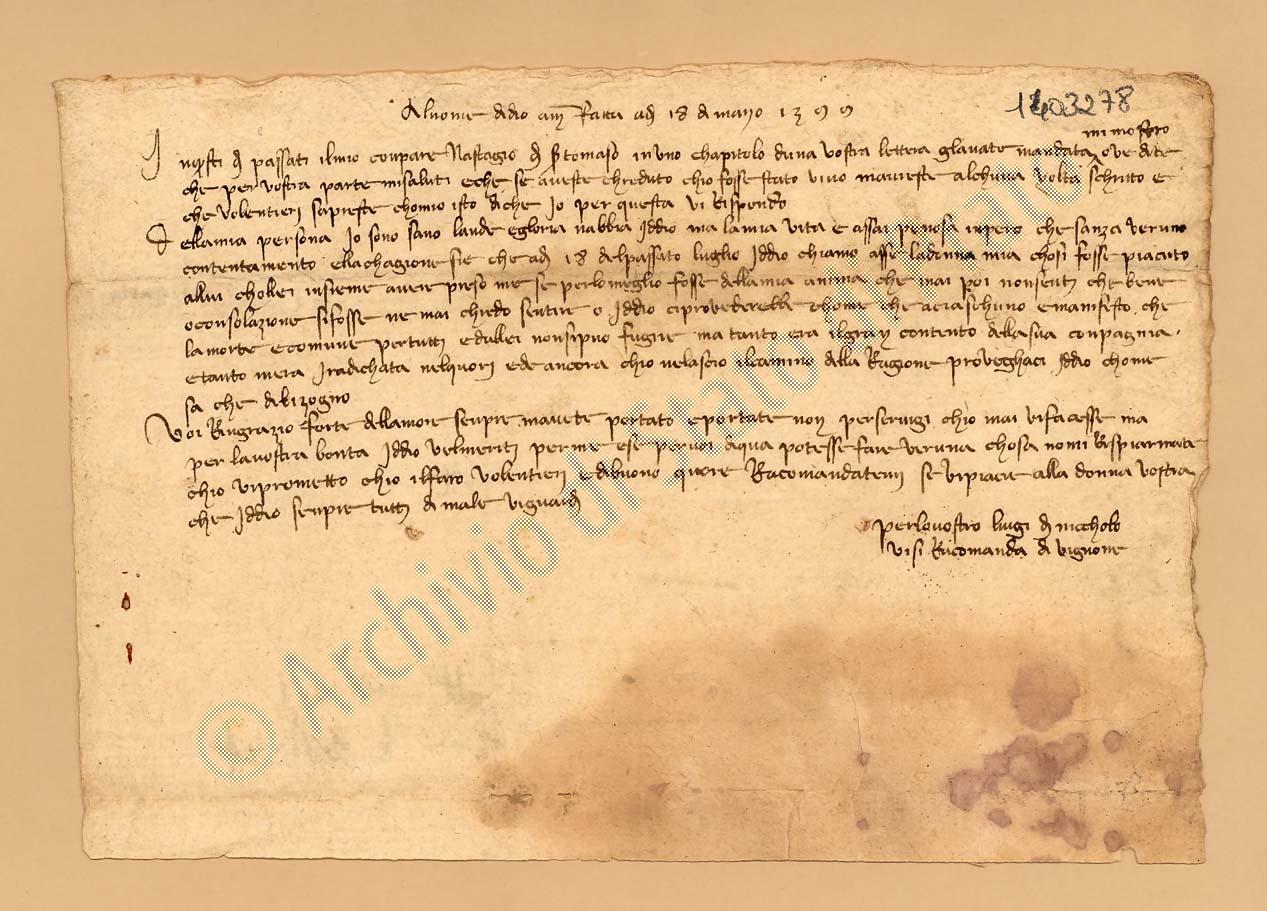 Al nome di dio am fatta adi 18 di marzo 1399
1403278
mi mostro
In questi di passati il mio conpare Nastagio di s tomaso in uno chapitolo duna vostra lettera gl avate mandata ove dite
che per vostra parte mi saluti e che se aveste chreduto chio fosse stato vivo mavreste alchuna volta schritto e
che volentieri sapreste chomio isto di che Io per questa vi Rispondo
Della mia persona Io sono sano laude e gloria nabbia Iddio ma la mia vita e assai penosa inpero che sanza veruno
contentamento e la chagione sie che adi 18 del passato luglio Iddio chiamo asse la donna mia chosi fosse piaciuto
allui chollei insieme avere preso me se per lo meglio fosse della mia anima che mai poi non senti che bene
o consolazione si fosse ne mai chredo sentire o Iddio ci provederebbe chome che aciaschuno e manifesto che
la morte e comune per tutti e dallei non si puo fugire ma tanto era il gran contento della sua conpagnia
e tanto mera Iradichata nel quori ede ancora chio ne lascio il camino della Ragione proveghaci Iddio chome
sa che di bizogno
Voi Ringrazio forte dellamore senpre mavete portato e portate non per servigi chio mai vi facesse ma
per la vostra bonta Iddio vel meriti per me e se per voi di qua potesse fare veruna chosa nomi Rispiarmate
chio vi prometto chio il faro volentieri e di buono quore Racomandatemi se vi piacie alla donna vostra
che Iddio senpre tutti di male vi guardi
per lo vostro luigi di nicholo
vi si Racomanda di vignone
© Archivio di Stato di Prato